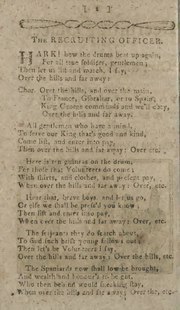 [ 2 ]
The RECRUITING OFFICER.
HARK! how the drums beat up again,
For all true soldiers, gentlemen;
Then let us list and march, I say,
Over the hills and far away:
Chor. Over the hills, and over the main,
To France, Gibraltar, or to Spain;
King George commands and we'll obey,
Over the hills and far away.
All gentlemen who have a mind,
To serve our King that's good and kind,
Come list, and enter into pay,
Then over the hills and far away: Over, etc.
Here is on the drum,
For those that Volunteers do come;
With shirts, and clothes, and present pay,
When over the hills and far away: Over, etc.
Hear that, brave boys, and let us go,
Or else we shall be prest you know;
Then list and enter into pay,
When over the hills and far away: Over, etc.
The serjeants they do search about,
To find such brisk young fellows out;
Then let's be Volunteers I say,
Over the hills and far away: Over the hills, etc.
The Spaniards now shall low be brought,
And wealth and be got,
Who then behind would sneaking stay,
When over the hills and far away: Over the, etc.